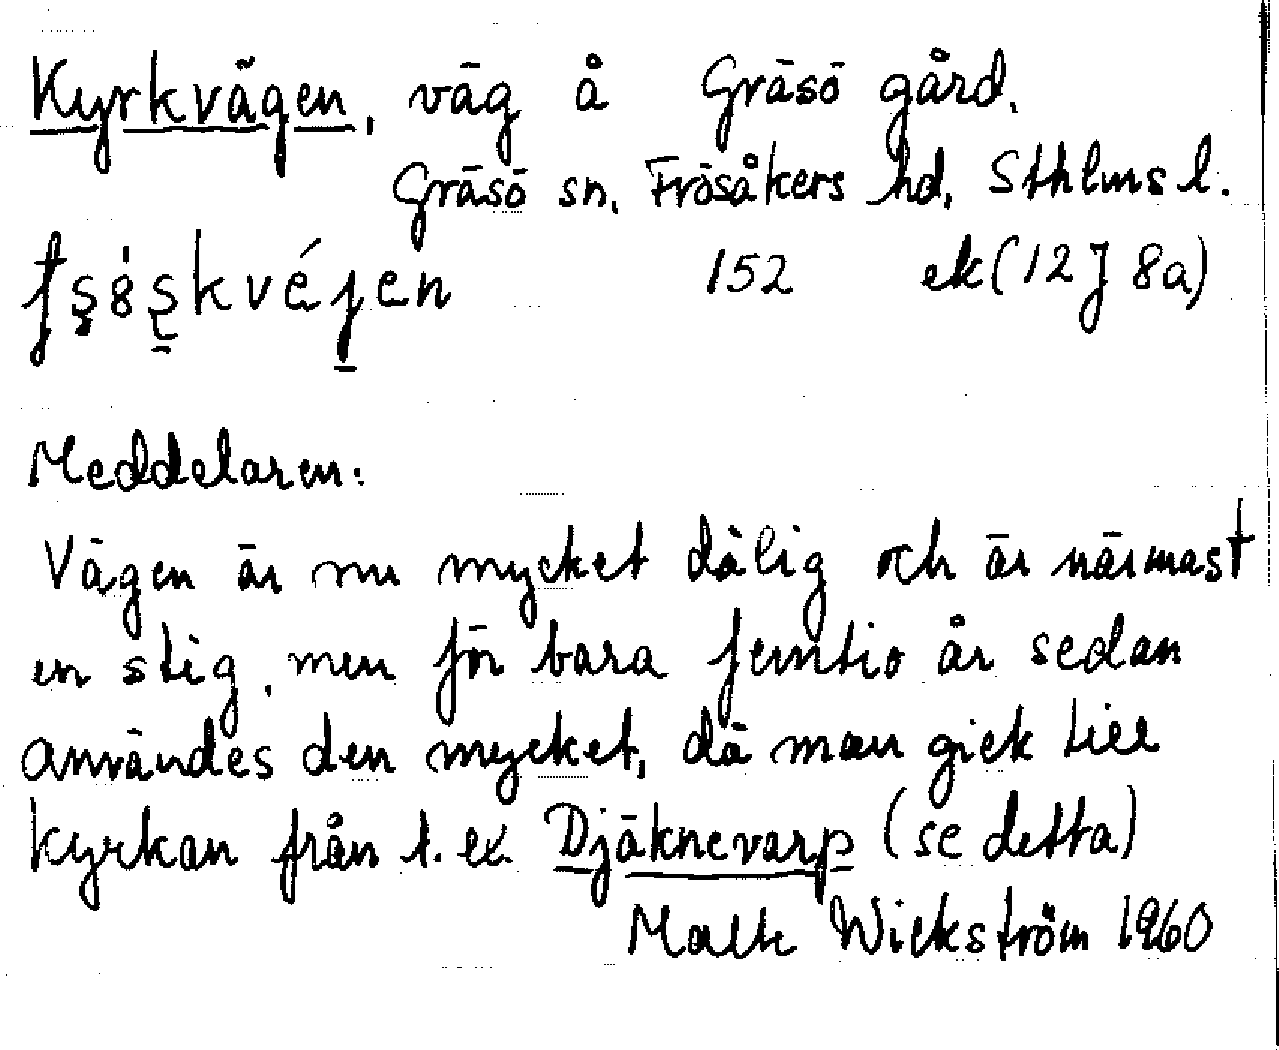 Kyrkvägen, väg å Gräsö gård.
Gräsö sn. Frösåkers hd. Sthlms l.
152 ek (12 J 8a)
Meddelaren:
Vägen är nu mycket dålig och är närmast
en stig, men för bara femtio år sedan
användes den mycket, då man gick till
kyrkan från t.ex. Djäknevarp (se detta)
Malte Wickström 1960